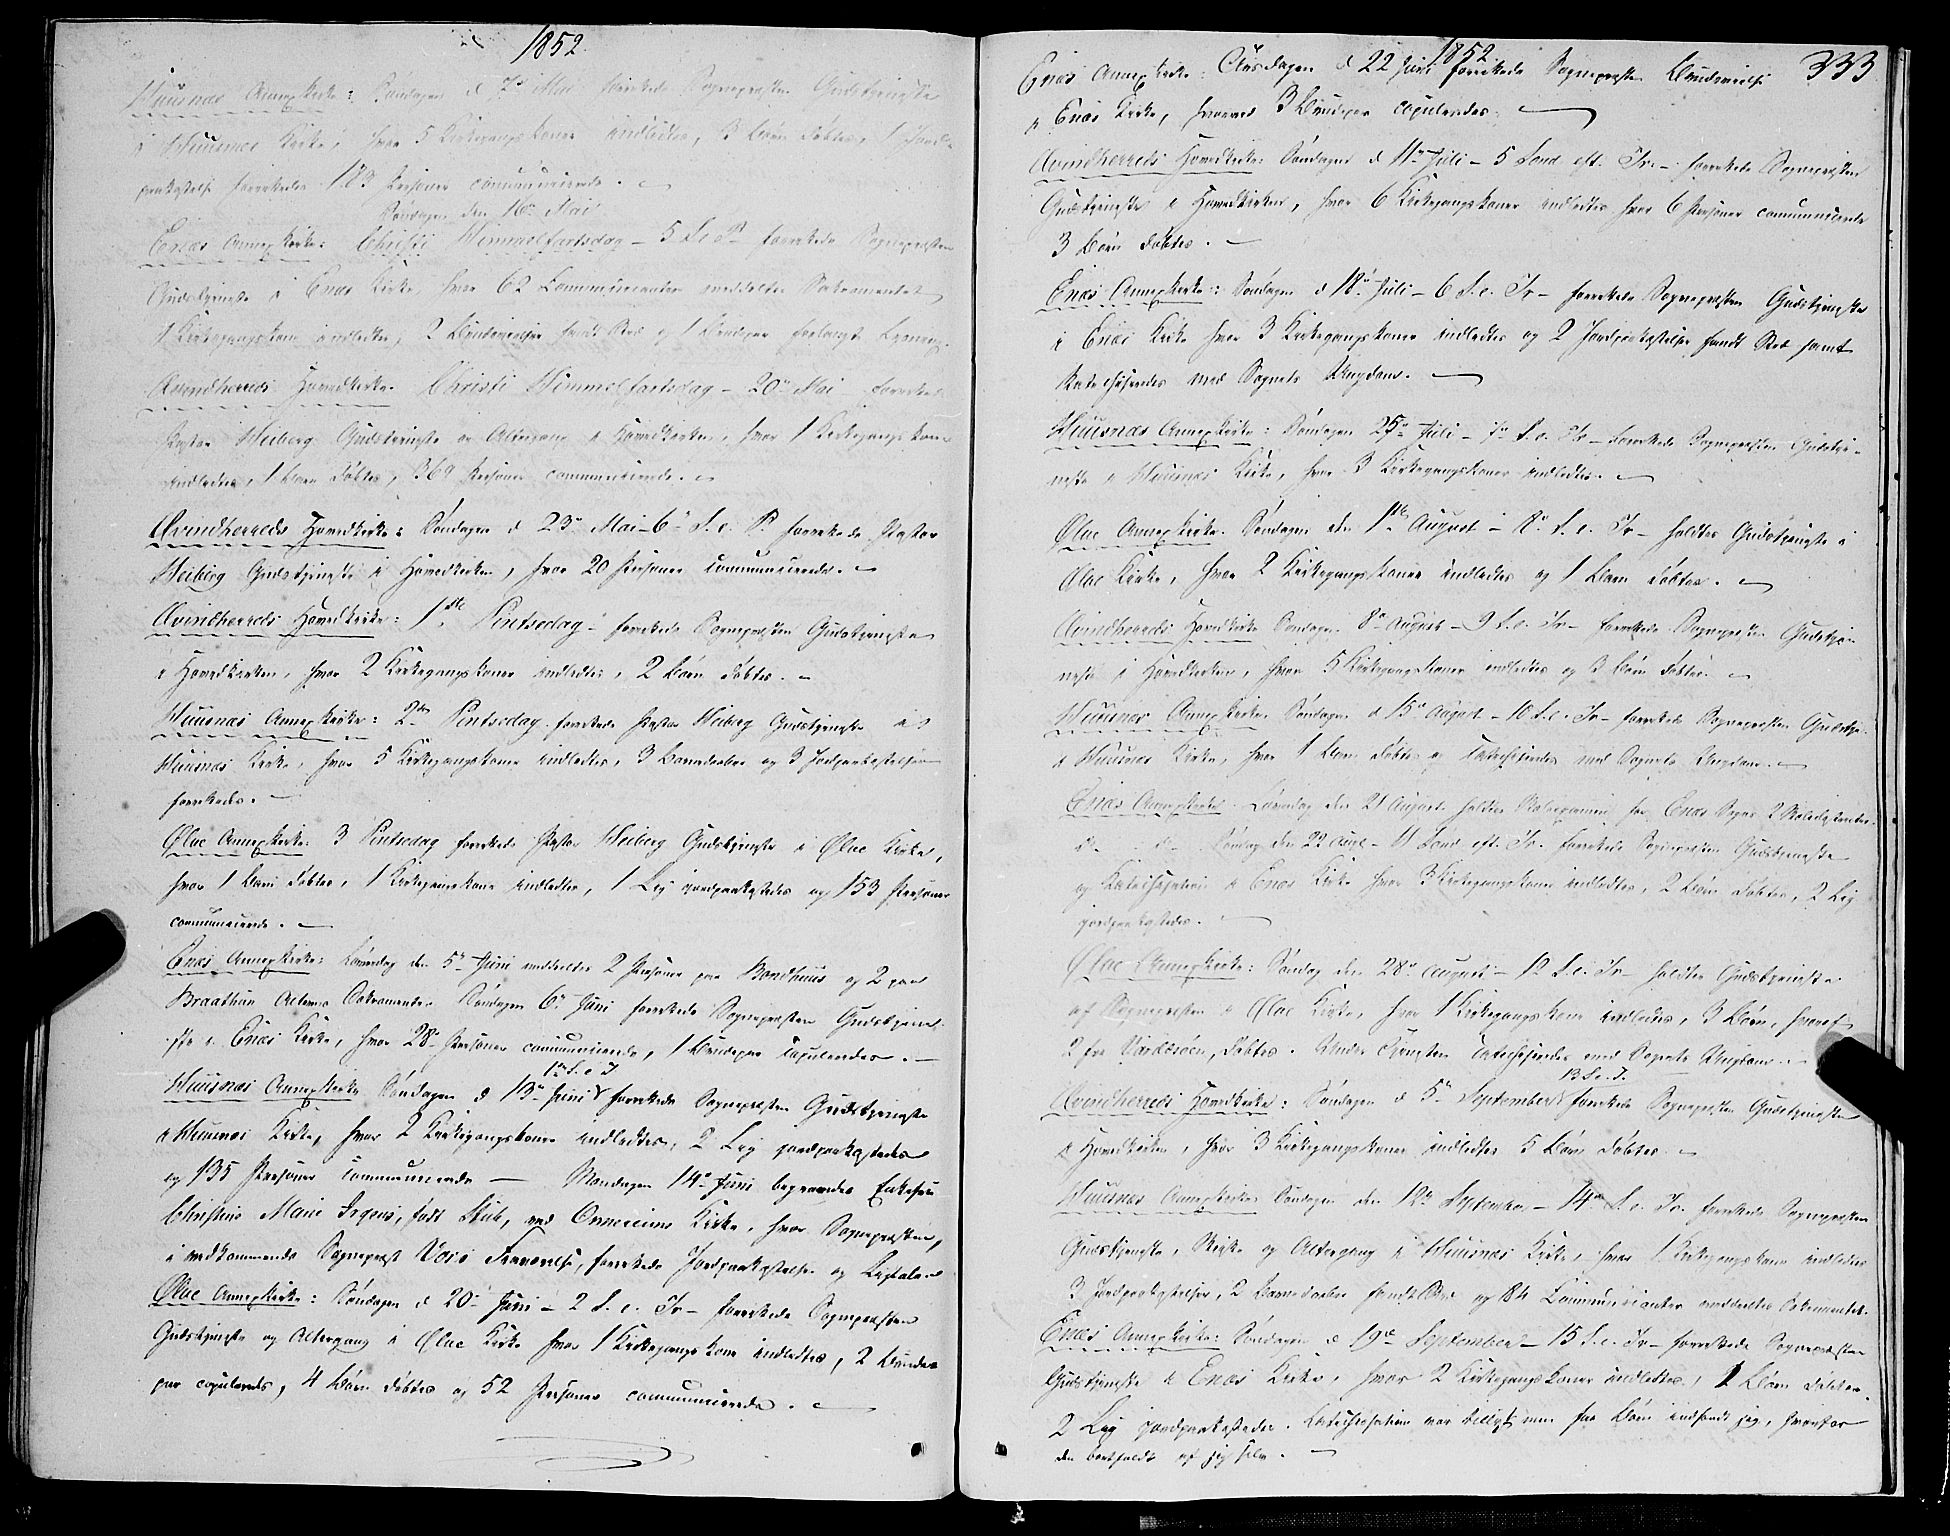 1852
Huusnæs Annexkirke: Søndagen d 2den Mai forrettede Sognepræsten Gudstjeneste
i Huusnæs Kirke, hvor 5 Kirkegangskoner indledtes, 3 Børn døbtes, 1 Jord-
paakastelse forrettedes 183 Personer communicerede. –
Søndagen den 16de Mai
Enæs Annexkirke: Christi Himmelfartsdag – 5 S. e. P. forrettede Sognepræsten
Gudstjeneste i Enæs Kirke, hvor 62 Communicanter meddeltes Sakramentet
1 Kirkegangskone indledtes, 2 fandt Sted og 1 Brudepar
Qvindherreds Hovedkirke. Christi Himmelfartsdag – 20de Mai – forrettede
Pastor Heiberg Gudstjeneste og Altergang i Hovedkirken, hvor 1 Kirkegangskone
indledtes, 1 Barn døbtes, 369 Personer communicerede. –
Qvindherreds Hovedkirke: Søndagen d 23de Mai – 6te S. e. P. forrettede Pastor
Heiberg Gudstjeneste i Hovedkirken, hvor 20 Personer communicerede. –
Qvindherreds Hovedkirke: 1ste Pintsedag – forrettede Sognepræsten Gudstjeneste
i Hovedkirken, hvor 2 Kirkegangskoner indledtes, 2 Børn døbtes. –
Huusnæs Annexkirke: 2den Pintsedag forrettede Pastor Heiberg Gudstjeneste i
Huusnæs Kirke, hvor 5 Kirkegangskoner indledtes, 3 Barnedaaber og 3 Jordpaakastelser
forrettedes. –
Ølve Annexkirke: 3 Pintsedag forrettede Pastor Heiberg Gudstjeneste i Ølve Kirke,
hvor 1 Barn døbtes, 1 Kirkegangskone indledtes, 1 Lig jordpaakastedes og 153 Personer
communicerede. –
Enæs Annexkirke: Løverdag den 5te Juni meddeeltes 2 Personer paa Bondhuus og 2 paa
Braathun Alterens Sakramente. Søndagen 6te Juni forrettede Sognepræsten Gudstjene-
ste i Enæs Kirke, hvor 28 Personer communicerede, 1 Brudepar copuleredes. –
1ste S. e. T.
Huusnæs Annexkirke Søndagen d 13de Juni forrettede Sognepræsten Gudstjeneste
i Huusnæs Kirke, hvor 2 Kirkegangskoner indledtes, 2 Lig jordpaakastedes
og 135 Personer communicerede – Mandagen 14de Juni begravedes Enkefru
Christine Marie Irgens, født Stub, ved Kirke, hvor Sognepræsten,
i vedkommende Sognepræst Fraværelse, forrettede Jordpaakastelse og Ligtale.
Ølve Annexkirke: Søndagen d 20de Juni – 2 S. e. Tr. – forrettede Sognepræsten
Gudstjeneste og Altergang i Ølve Kirke hvor 1 Kirkegangskone indledtes, 2 Brude-
par copuleredes, 4 Børn døbtes og 52 Personer communicerede. –
1852
333
Enæs Annexkirke: Tirsdagen d 22 Juni forrettede Sognepræsten Brudevielse
i Enæs Kirke, hvorved 3 Brudepar copuleredes. –
Qvindherreds Hovedkirke: Søndagen d 11te Juli – 5 Sønd. eft. Tr. – forrettede Sognepræsten
Gudstjeneste i Hovedkirken, hvor 6 Kirkegangskoner indledtes hvor 6 Personer communicerede
3 Børn døbtes. –
Enæs Annexkirke: Søndagen d 18de Juli – 6 S. e. Tr. – forrettede Sognepræsten Gudstjeneste
i Enæs Kirke hvor 3 Kirkegangskoner indledtes og 2 Jordpaakastelser fandt Sted samt
Katechiseredes med Sognets Ungdom. –
Huusnæs Annexkirke: Søndagen 25de Juli – 7de S. e. Tr. – forrettede Sognepræsten Gudstje-
neste i Huusnæs Kirke, hvor 3 Kirkegangskoner indledtes. –
Ølve Annexkirke. Søndagen den 1ste August – 8de S. e. Tr. – holdtes Gudstjeneste i
Ølve Kirke, hvor 2 Kirkegangskoner indledtes og 1 Barn døbtes. –
Qvindherreds Hovedkirke Søndagen 8de August – 9 S. e. Tr. – forrettede Sognepræsten Gudstje-
neste i Hovedkirken, hvor 5 Kirkegangskoner indledtes og 3 Børn døbtes. –
Huusnæs Annexkirke. Søndagen d 15de August – 10 S. e. Tr. – forrettede Sognepræsten Gudstje-
i Huusnæs Kirke, hvor 1 Barn døbtes og Catechiseredes med Sognets Ungdom. –
Enæs Annexkirke. Løverdag den 21 August holdtes Skoleexamen for Enæs Sogns 2 Skoledistrikter.
d° – d° – Søndag den 22 Aug. – 11 Sønd. eft. Tr. forrettede Sognepræsten Gudstjeneste
og Katechisation i Enæs Kirke hvor 3 Kirkegangskoner indledtes, 2 Børn døbtes, 2 Lig
jordpaakastedes. –
Ølve Annexkirke: Søndag den 28de August – 12 S. e. Tr. – holdtes Gudstjeneste
af Sognepræsten i Ølve Kirke, hvor 1 Kirkegangskone indledtes, 3 Børn, hvoraf
2 fra Varaldsøen, døbtes. Under Tjenesten Catechiseredes med Sognets Ungdom. –
13 S. e. T.
Qvindherreds Hovedkirke: Søndagen d 5te September forrettede Sognepræsten Gudstjeneste
i Hovedkirken, hvor 3 Kirkegangskoner indledtes 5 Børn døbtes. –
Huusnæs Annexkirke Søndagen den 12te September – 14de S. e. Tr. forrettede Sognepræsten
Gudstjeneste, og Altergang i Huusnæs Kirke, hvor 1 Kirkegangskone indledtes
3 Jordpaakastelser, 2 Barnedaaber fandt Sted og 84 Communicanter meddeltes Sakramentet.
Enæs Annexkirke: Søndagen d 19de September – 15 S. e. Tr. – forrettede Sognepræsten
Gudstjeneste i Enæs Kirke, hvor 2 Kirkegangskoner indledtes, 2 Børn døbtes.
2 Lig jordpaakastedes. Catechisation var tillyst men faa Børn indfandt sig, hvorfor
den bortfaldt af sig selv. –